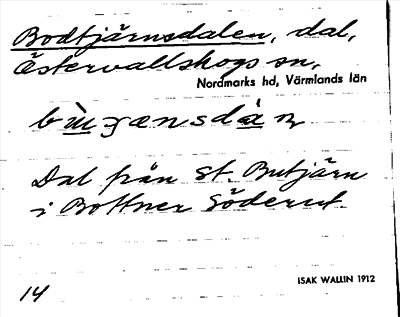 Bodtjärnsdalen, dal,
Östervallskogs sn,
Nordmarks hd, Värmlands län
Dal från St. Butjärn
i Bottner Söderut.
ISAK WALLIN 1912
14